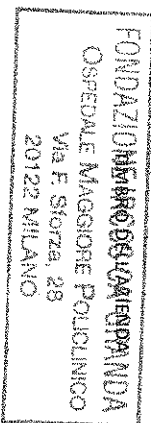 FONDAZIONE IRCCS CA' GRANDA
TIMBRO DELL'AZIENDA
OSPEDALE MAGGIORE POLICLINICO
Via F. Sforza, 28
20122 MILANO